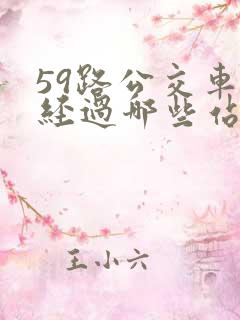 59路公交車
經過那些佔
王小六